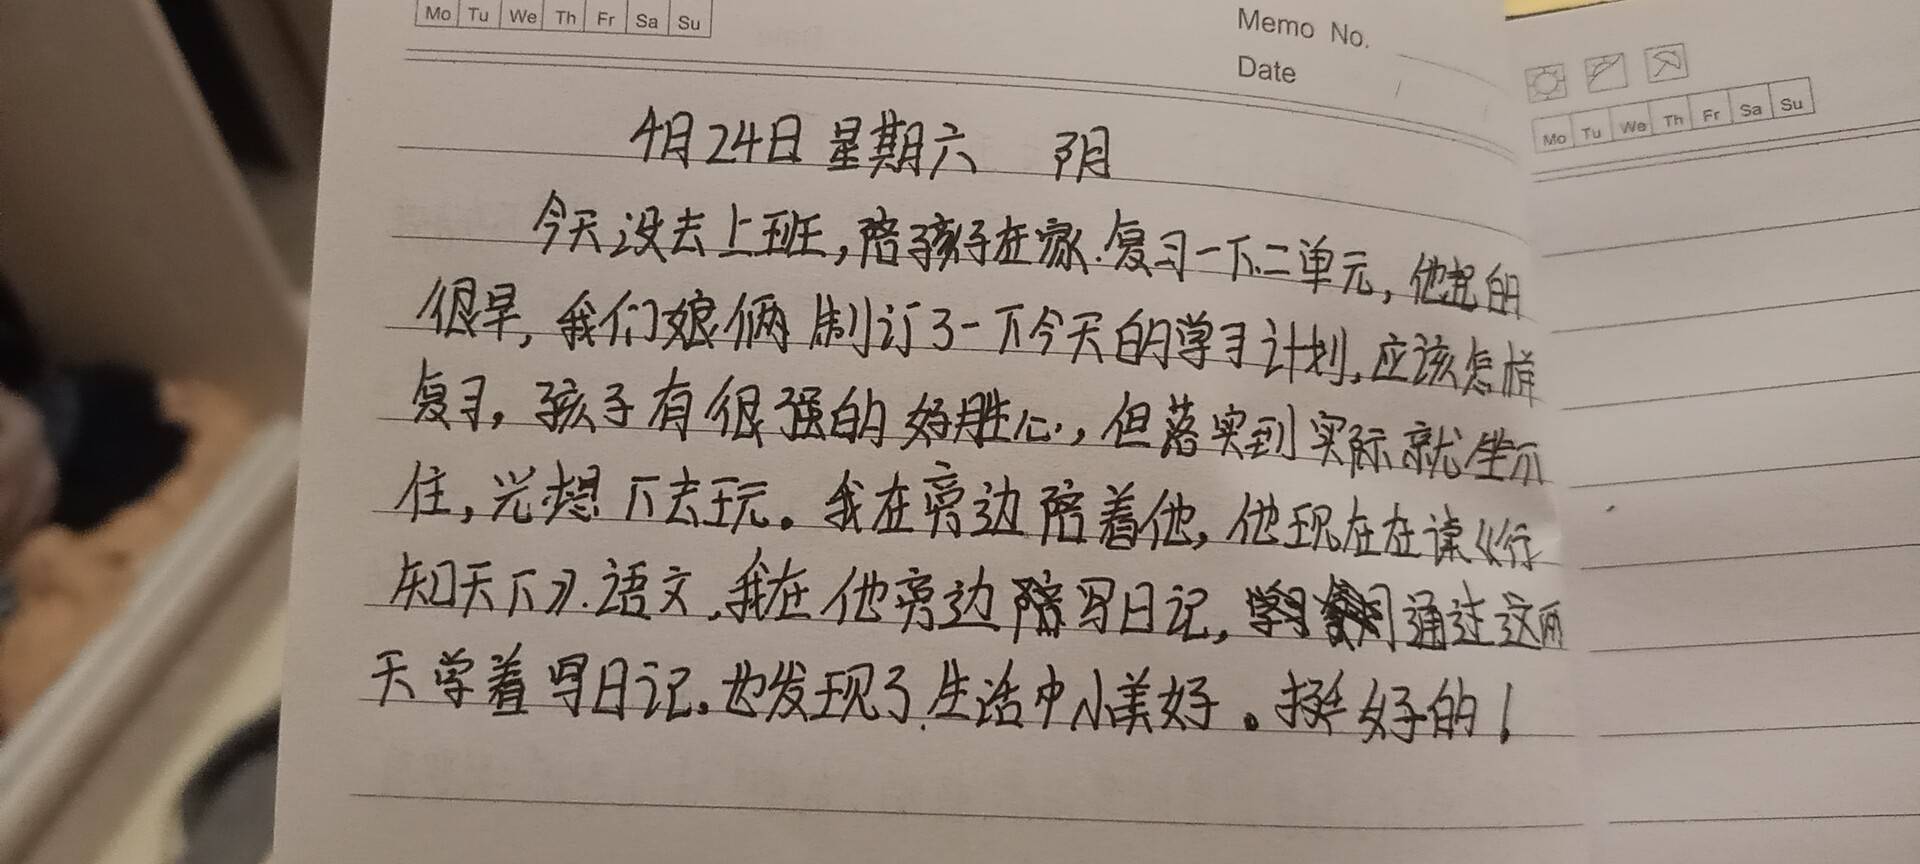 Mo Tu We Th Fr Sa Su
Memo No.
Date
4月24日 星期六 阴
今天没去上班,陪孩子在家.复习一下二单元,他起的
很早,我们娘俩制订了一下今天的学习计划,应该怎样
复习,孩子有很强的好胜心,但落实到实际就坐不
住,光想下去玩。我在旁边陪着他,他现在在读《行
知天下》.语文,我在他旁边陪写日记,学习通过这两
天学着写日记。也发现了生活中小美好。挺好的!
Mo Tu We Th Fr Sa Su